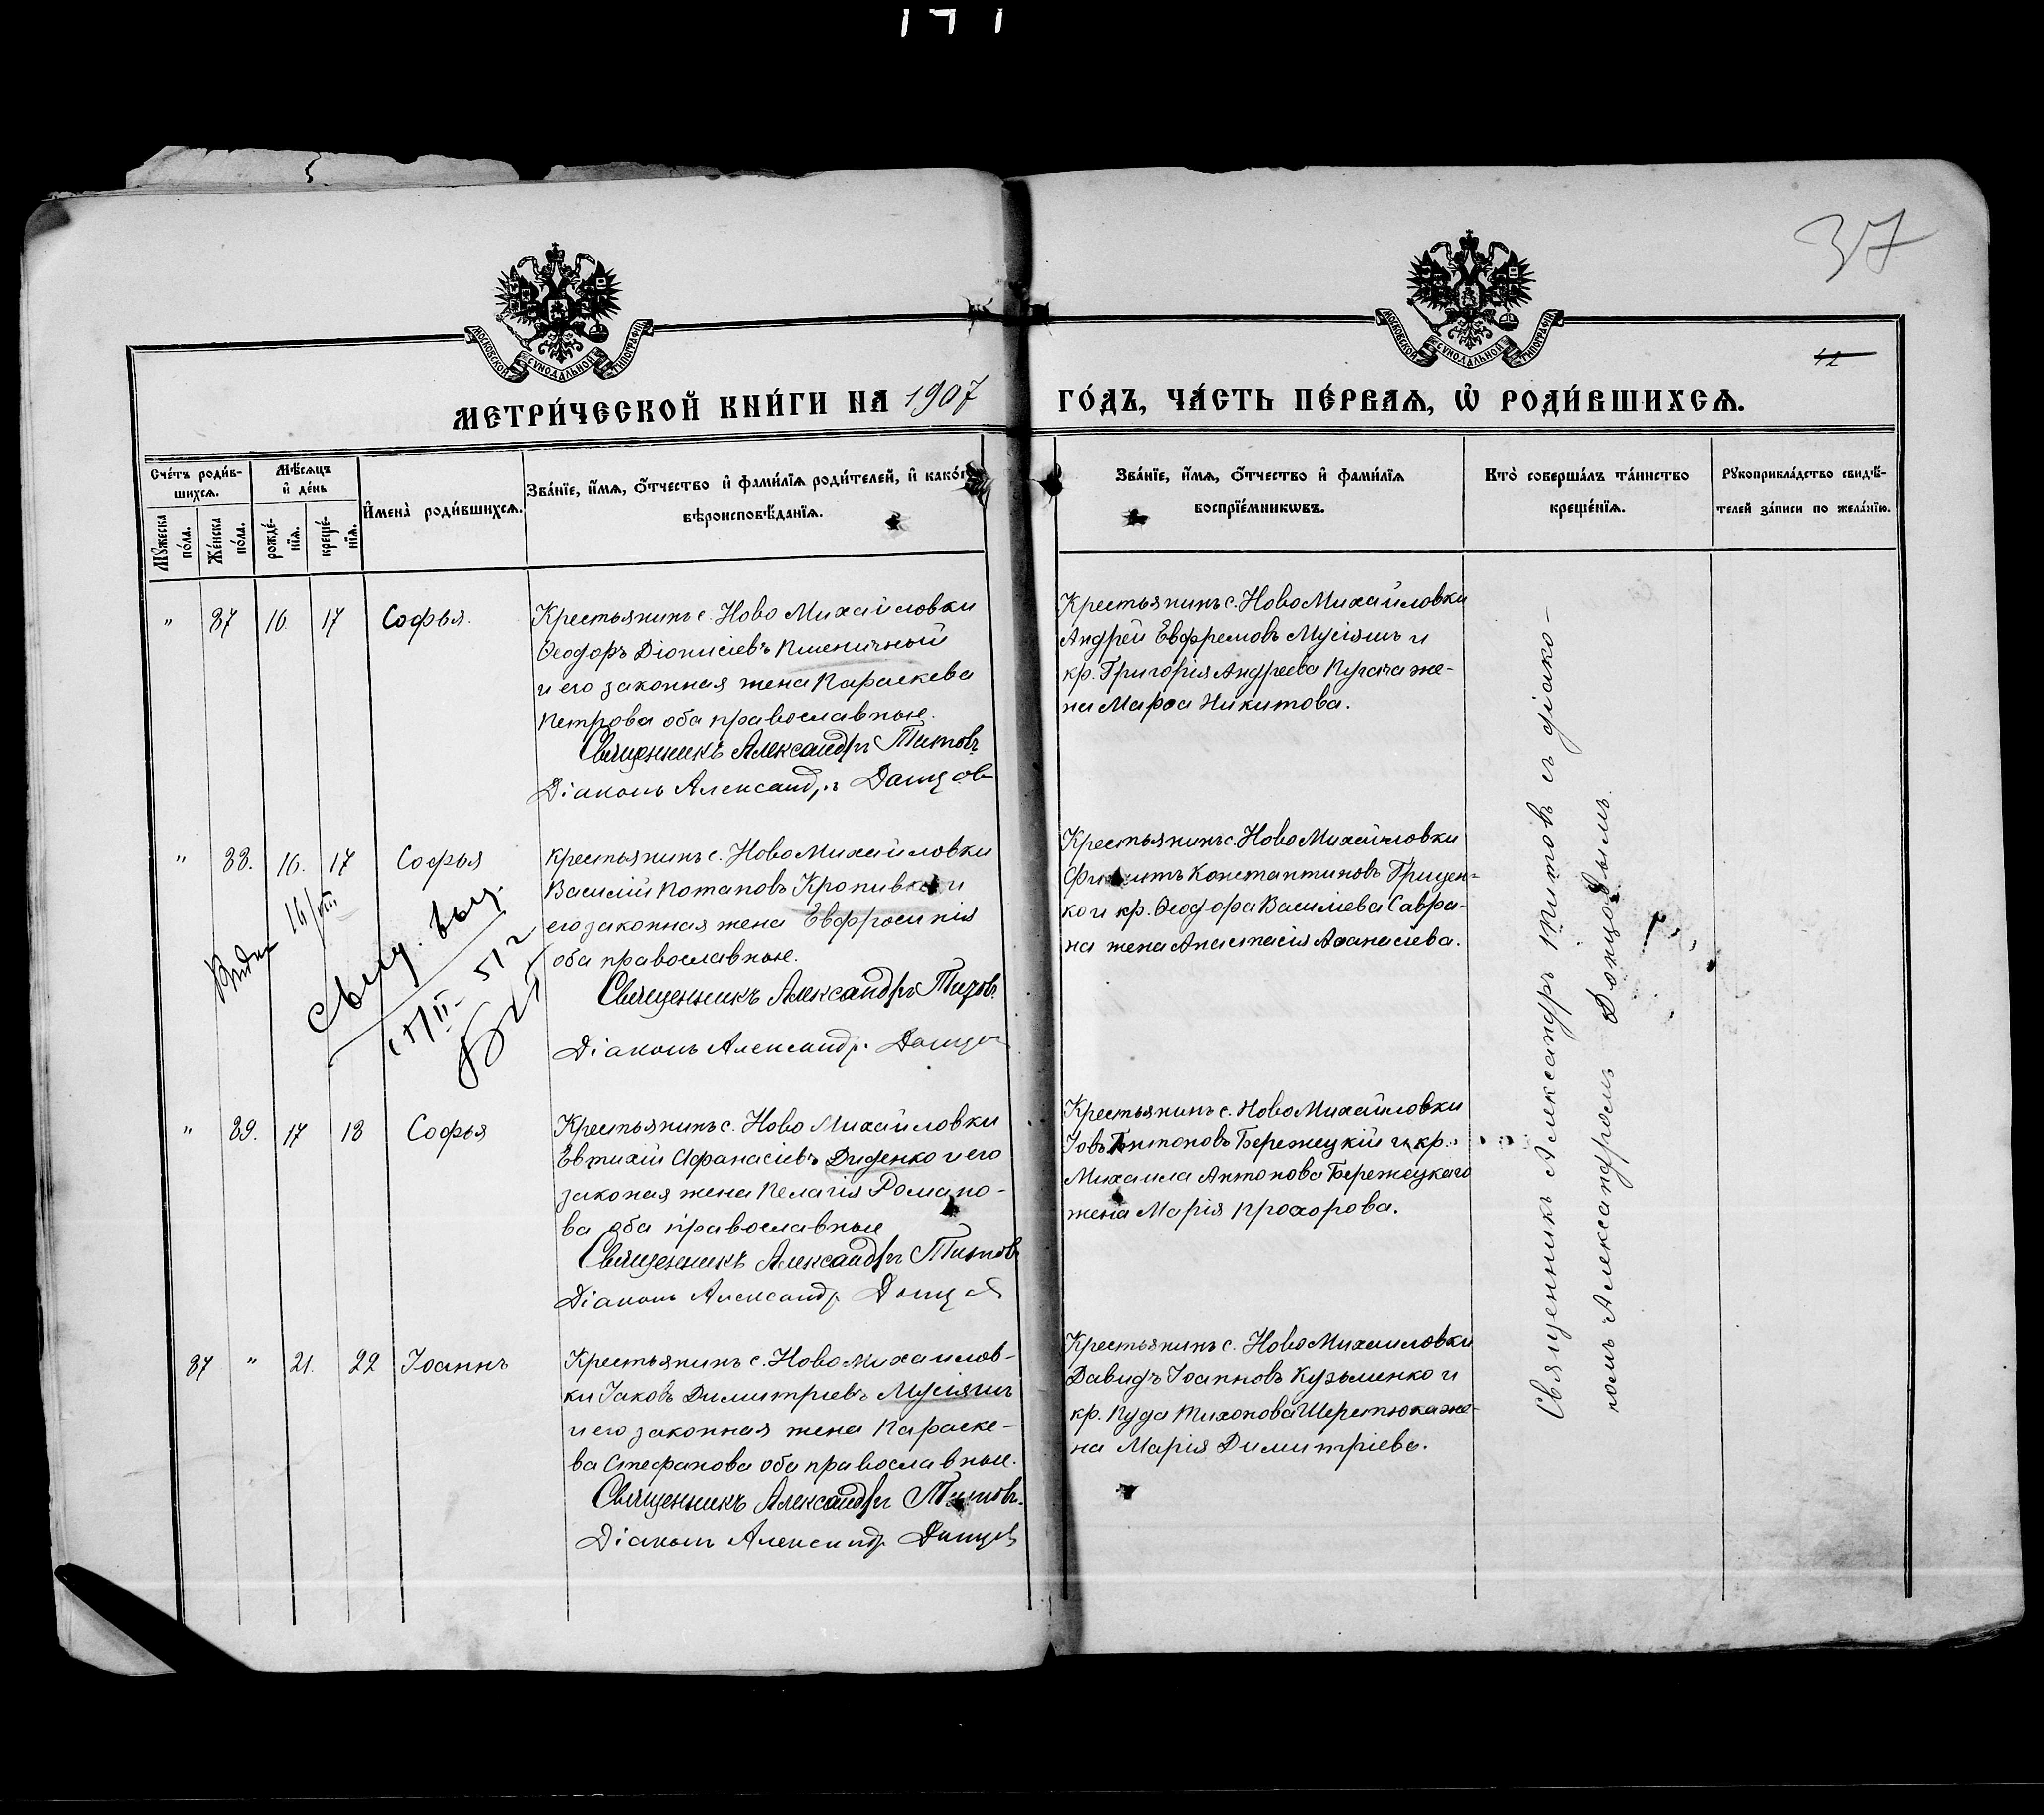 37
МОСКОВСКОЙ СУНОДАЛЬНОЙ ТИПОГРАФІИ
МОСКОВСКОЙ СУНОДАЛЬНОЙ ТИПОГРАФІИ
42
МЕТРИ́ЧЕСКОЙ КНИ́ГИ НА 1907
ГО́ДЪ, ЧА́СТЬ ПЕ́РВАѦ, Ѡ҆ РОДИ́ВШИХСѦ.
Сче́тъ роди́в-
шихсѧ.
Мѣ́сѧцъ
и҆ де́нь
Мꙋжеска
по́ла.
Же́нска
по́ла.
рожде́-
нїѧ.
креще́-
нїѧ.
И҆мена̀ роди́вшихсѧ.
Зва́нїе, и҆́мѧ, ѻ҆́тчество и҆ фами́лїѧ роди́телей, и҆ како́гѡ
вѣроисповѣ́данїѧ.
Зва́нїе, и҆́мѧ, ѻ҆́тчество и҆ фами́лїѧ
воспрїе́мникѡвъ.
Кто̀ соверша́лъ та́инство
креще́нїѧ.
Рꙋкоприкла́дство свидѣ́-
телей за́писи по жела́нїю.
" 37 16. 17 Софья.
Крестьянинъ с. Ново Михайловки
Ѳеодоръ Діонисіевъ Пшеничный
и его законная жена Параскева
Петрова оба православные.
Священникъ Александръ Титовъ
Діаконъ Александръ Донцов
Крестьянинъ с. Ново Михайловки
Андрей Евфремовъ Мусіяшъ и
кр. Григорія Андреева Пугача же-
на Марѳа Никитова.
" 38. 16. 17 Софья
Крестьянинъ с. Ново Михайловки
Василій Потаповъ Кропивка и
его законная жена Евфросинія
оба православные.
Священникъ Александръ Титовъ
Діаконъ Александр. Донцов
16/VIII
Свид. выд.
II - 51 г
Крестьянинъ с. Ново Михайловки
Константиновъ Грицен-
ко и кр. Ѳеодора Василіева Савра-
на жена Анастасія Аѳанасіева.
" 39. 17 18 Софья
Крестьянинъ с. Ново Михайловки
Евтихій Афанасіевъ Диденко и его
законая жена Пелагія Романо-
ва оба православные
Священникъ Александръ Титовъ
Діаконъ Александр. Донцов
Крестьянинъ с. Ново Михайловки
Іовъ Антоновъ Бережецкій и кр.
Михаила Антонова Бережецкаго
жена Марія Прохорова.
37 " 21. 22 Іоаннъ
Крестьянинъ с. Ново Михайлов-
ки Іаковъ Димитріевъ Мусіяшъ
и его законная жена Параске-
ва Стефанова оба православные.
Священникъ Александръ Титовъ.
Діаконъ Александр. Донцов
Крестьянинъ с. Ново Михайловки
Давидъ Іоанновъ Кузьменко и
кр. Пуда Тихонова Шеретюка же-
на Марія Димитріева.
Священникъ Александръ Титовъ съ діако-
номъ Александромъ Донцовымъ.